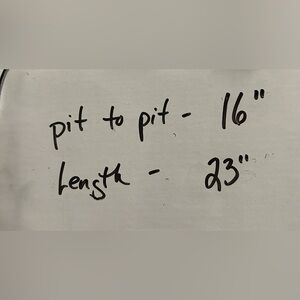 pit to pit - 16"
Length - 23"